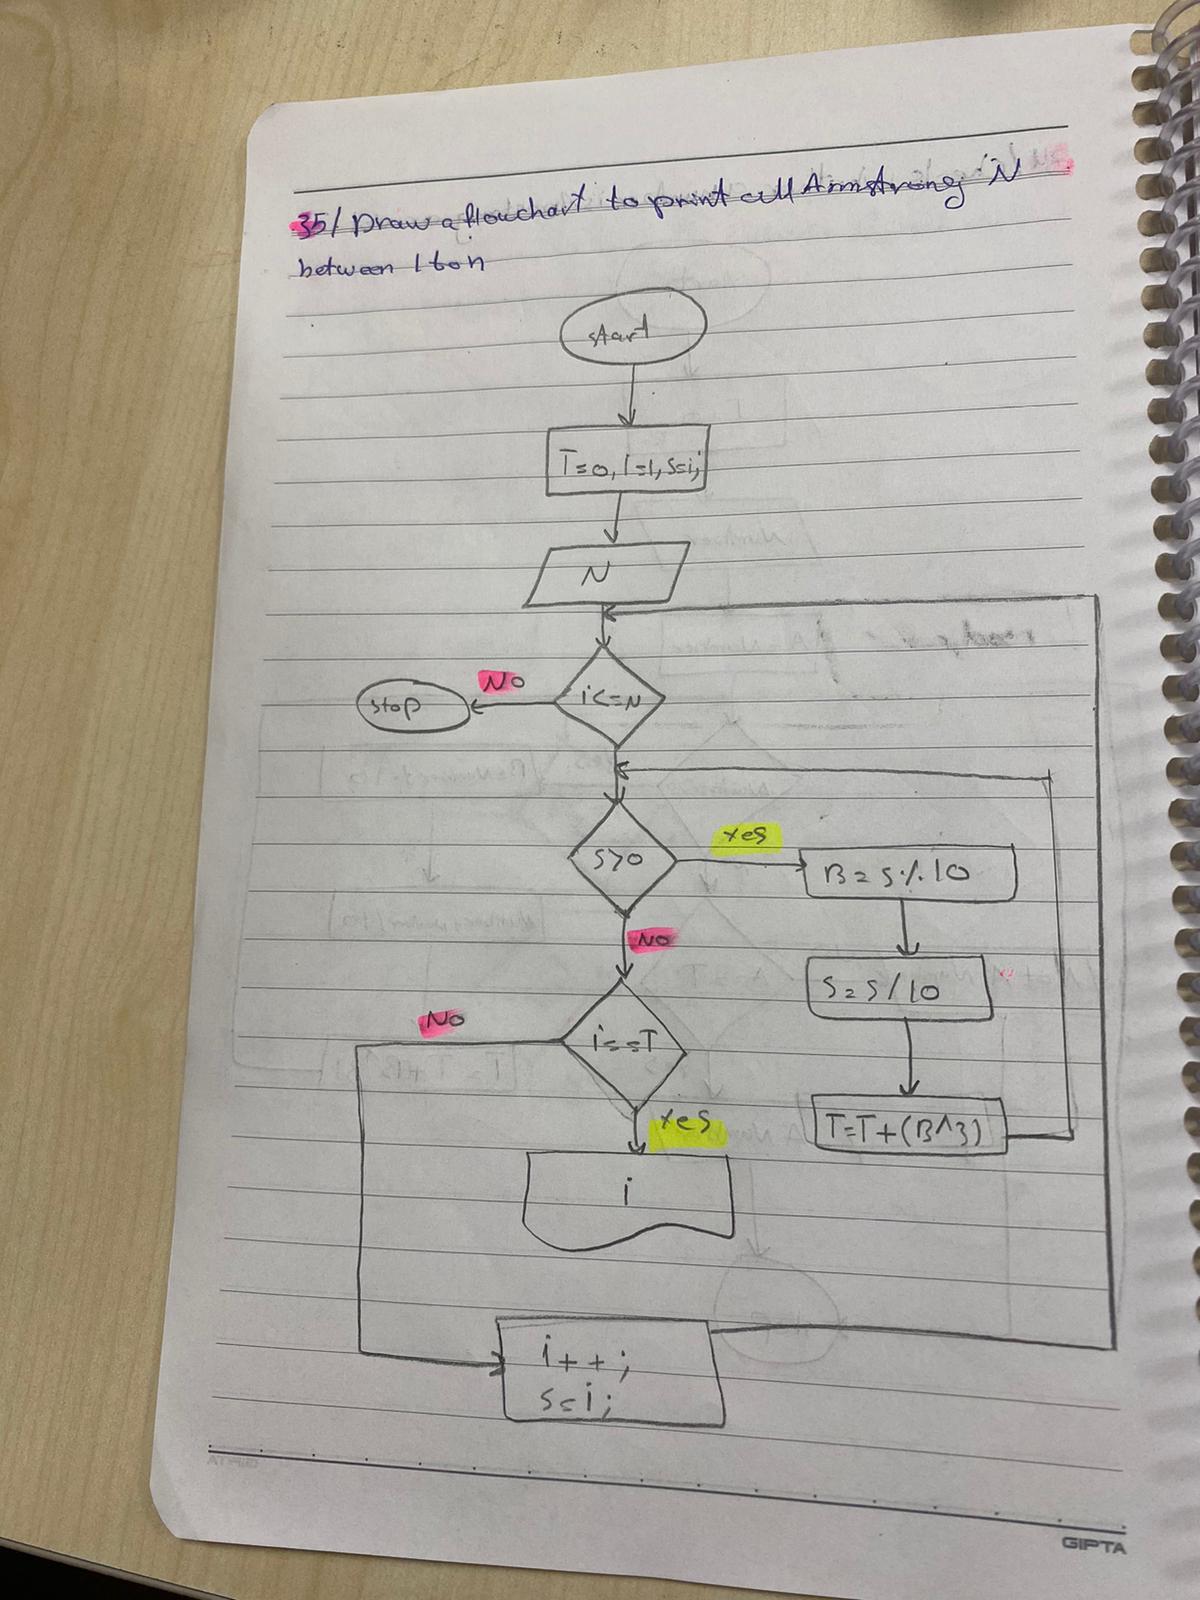 35/ Draw a flouchart to print all Armstrong N
between 1 to n
start
T=0, I=1, s=i;
N
i<=N
No
stop
s>0
Yes
B=s%10
No
s=s/10
i==T
No
T=T+(B^3)
Yes
i
i++;
s=i;
GIPTA